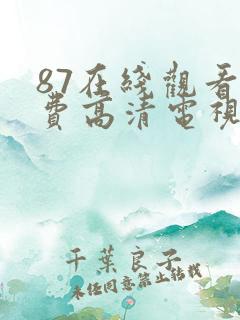 87在綫觀看
費高清電視
千葉良子
未经同意禁止转载